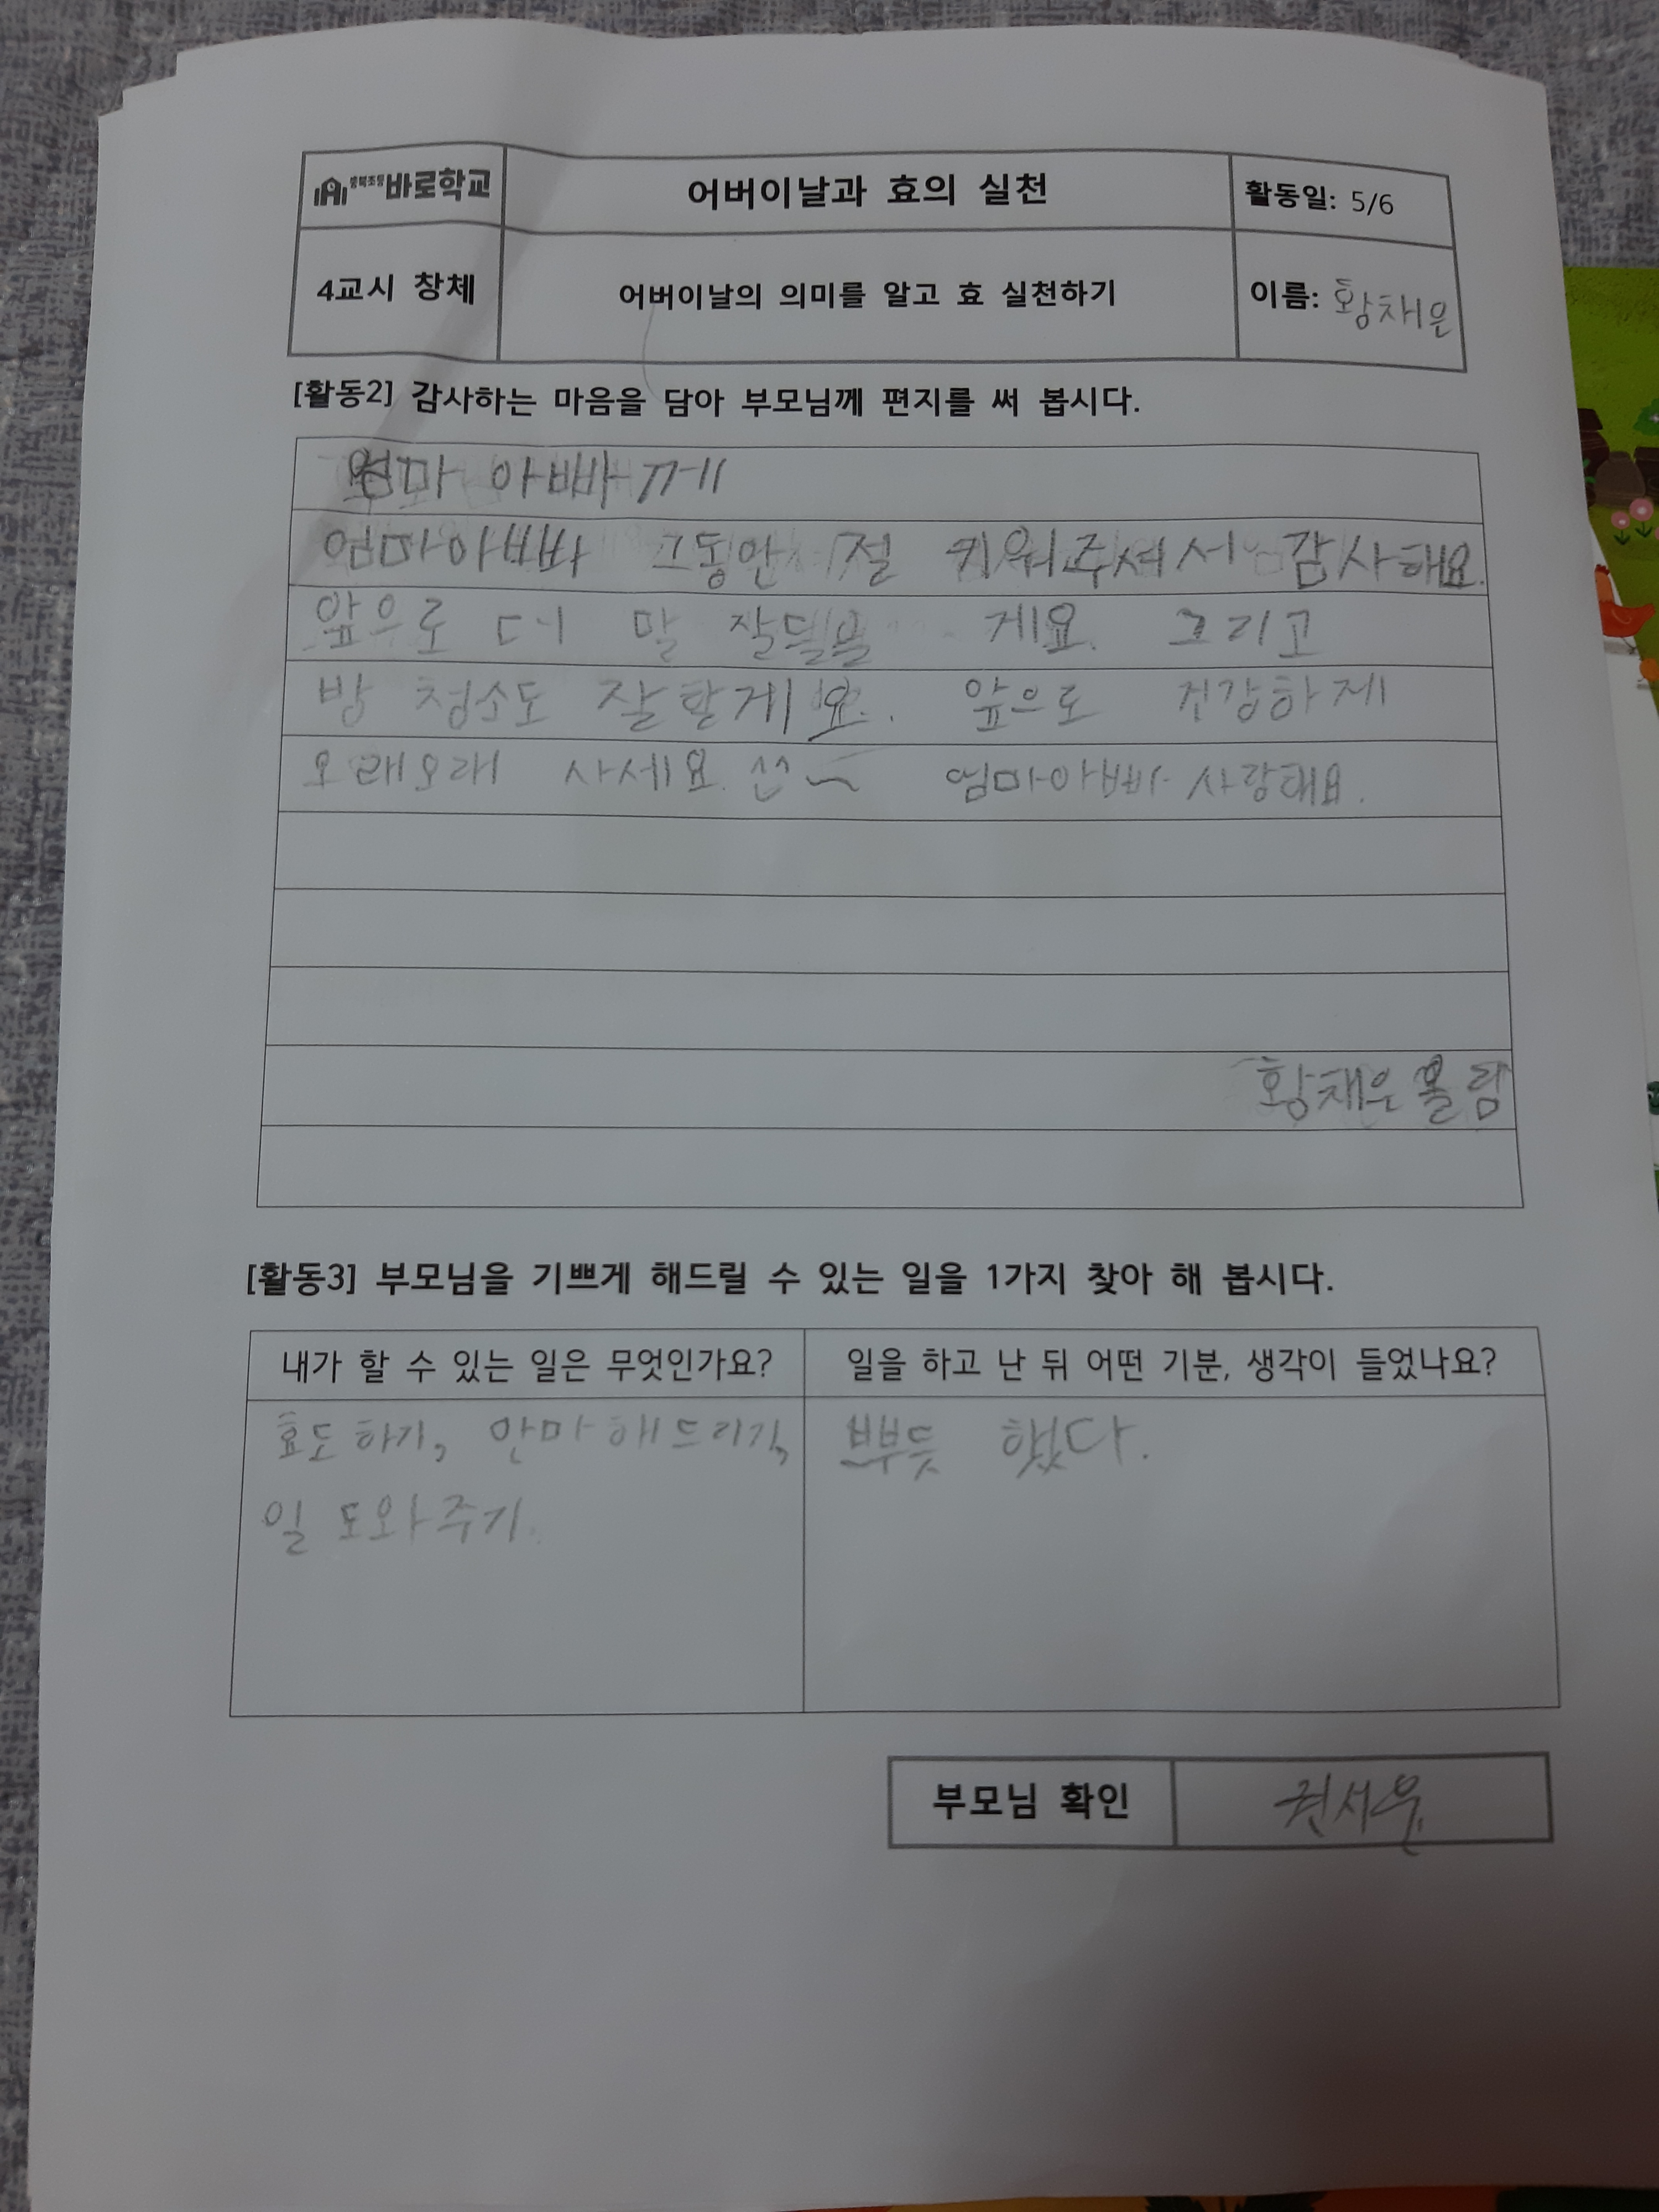 바로학교 어버이날과 효의 실천 활동일: 5/6
4교시 창체 어버이날의 의미를 알고 효 실천하기 이름: 황채은
[활동2] 감사하는 마음을 담아 부모님께 편지를 써 봅시다.
엄마 아빠께
엄마아빠 그동안 절 키워주셔서 감사해요.
앞으로 더 말 게요. 그리고
방 청소도 잘할게요. 앞으로 건강하게
오래오래 사세요. ^^~ 엄마아빠 사랑해요.
황채은 올림
[활동3] 부모님을 기쁘게 해드릴 수 있는 일을 1가지 찾아 해 봅시다.
내가 할 수 있는 일은 무엇인가요? 일을 하고 난 뒤 어떤 기분, 생각이 들었나요?
효도하기, 안마해드리기, 뿌듯 했다.
일 도와주기.
부모님 확인